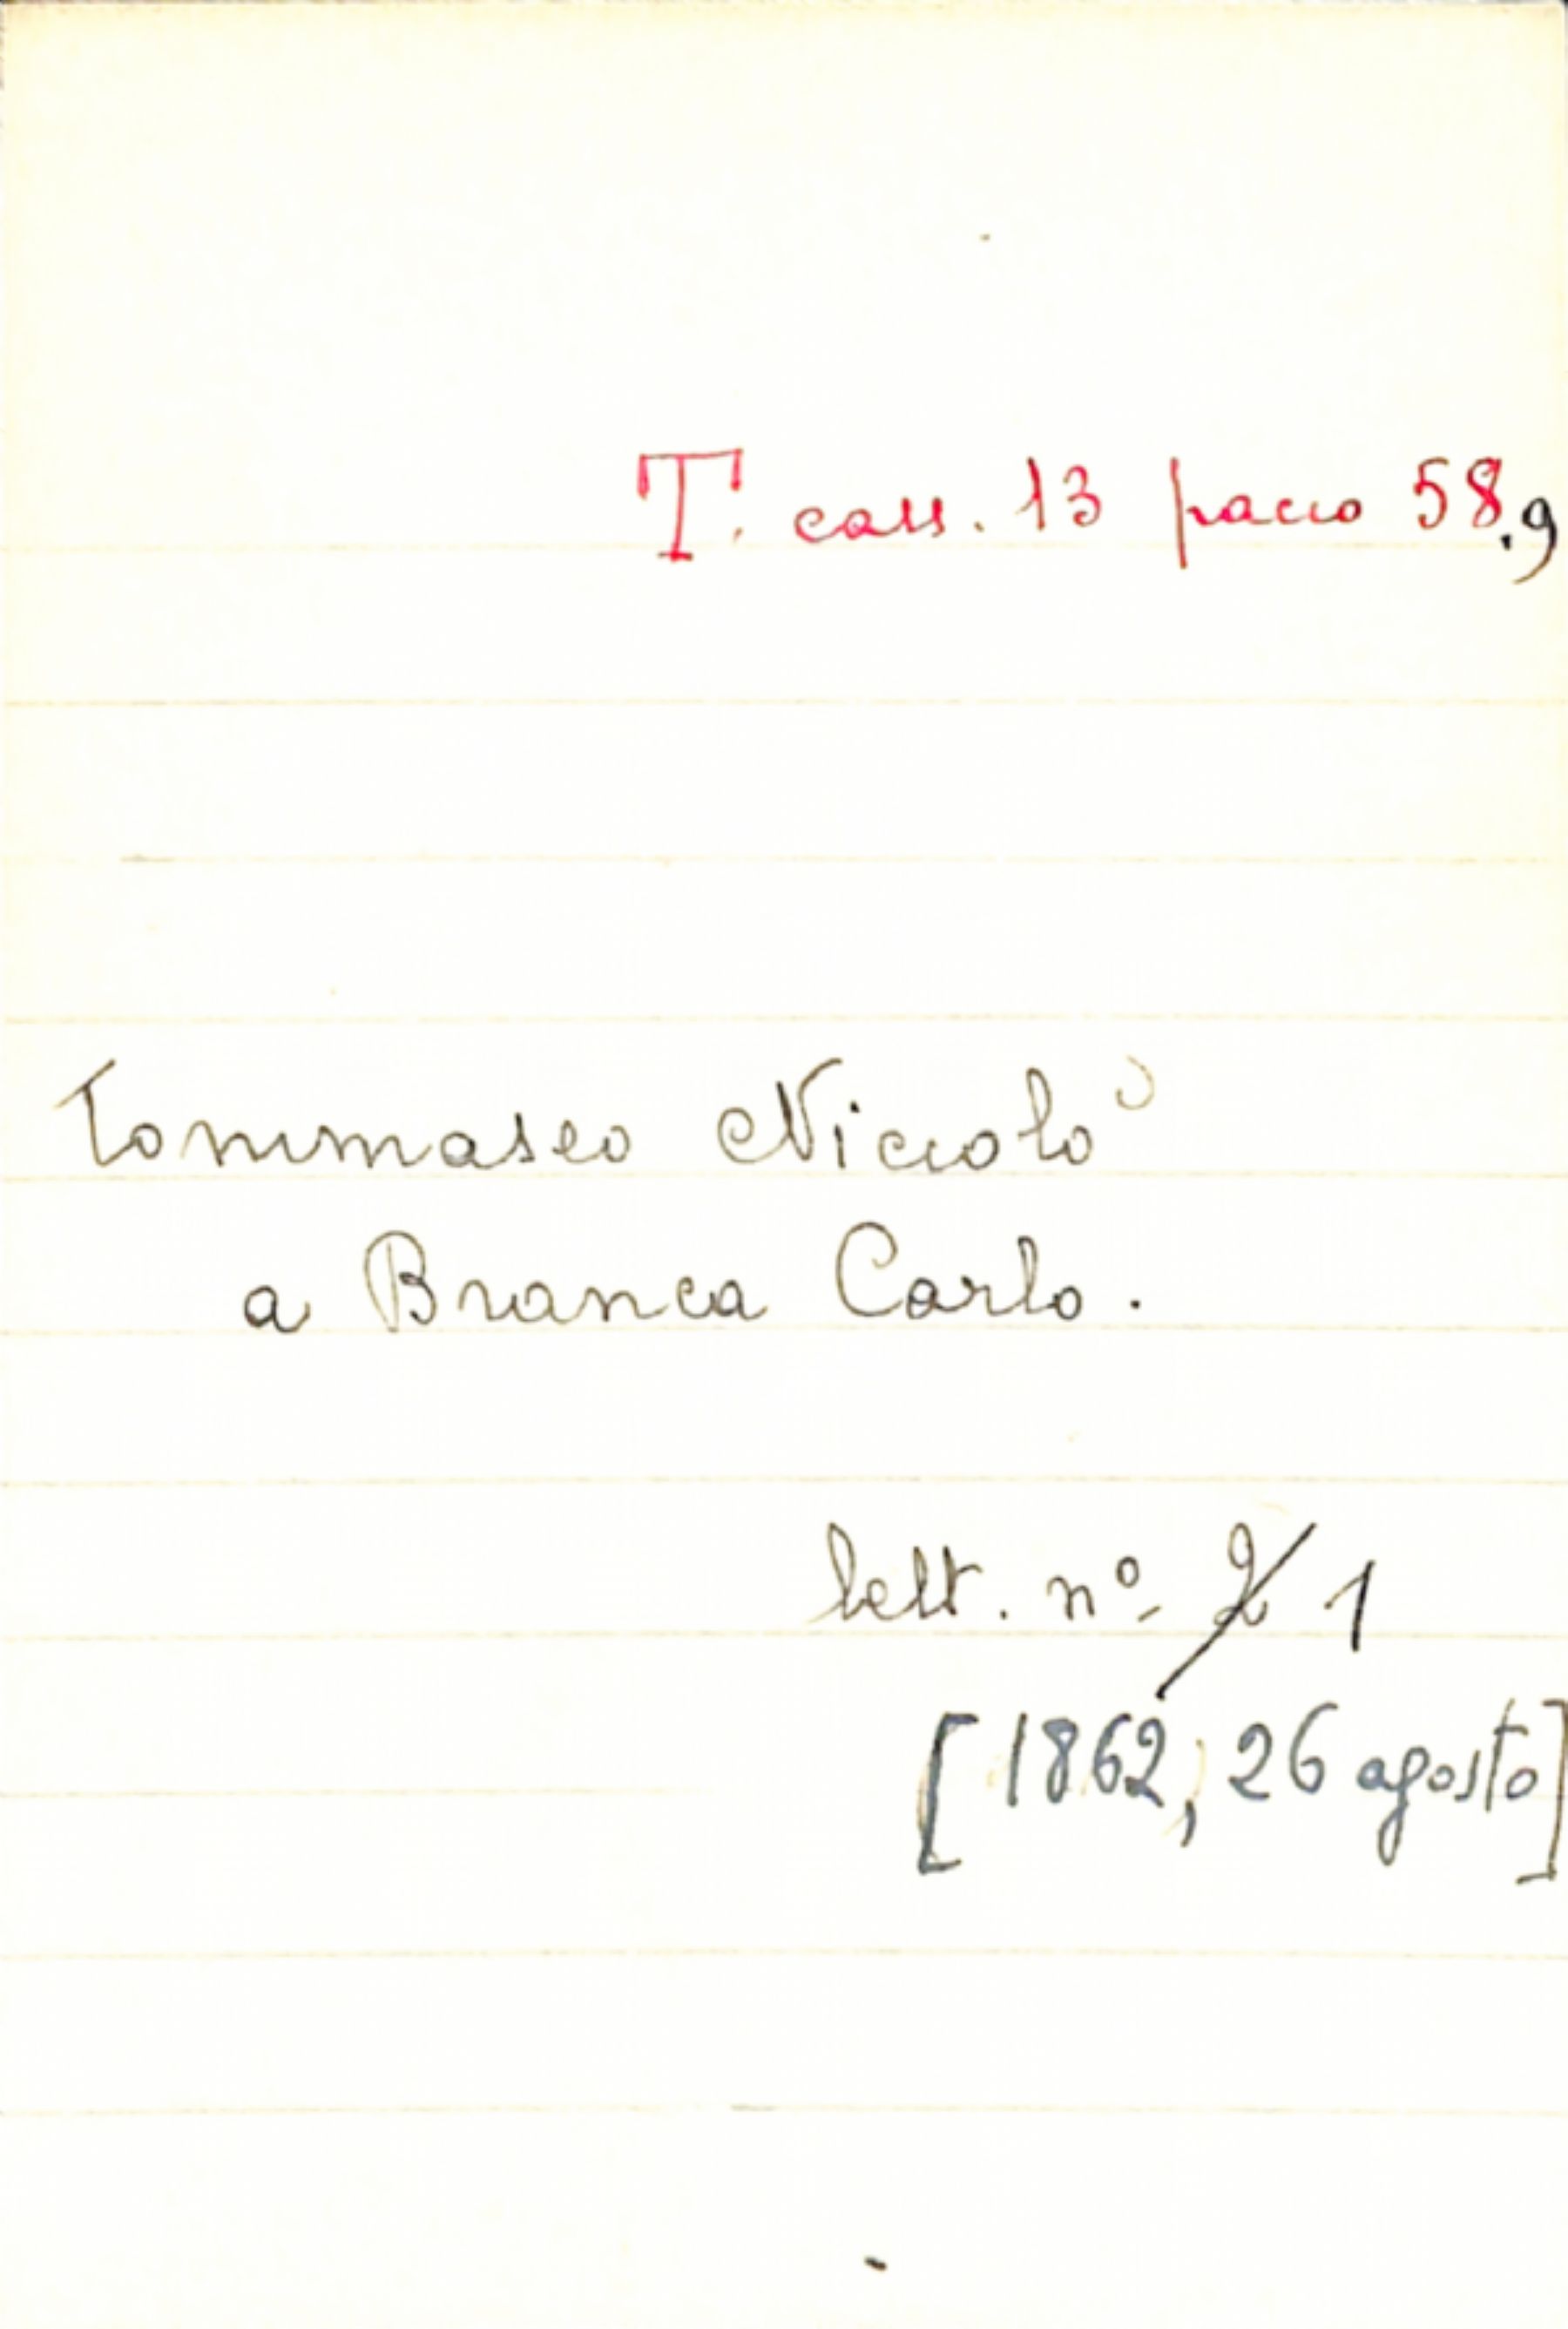 T. cass. 13 pacco 58.9
Tommaseo Niccolò
a Branca Carlo.
lett. nº 2 1
[1862, 26 agosto]